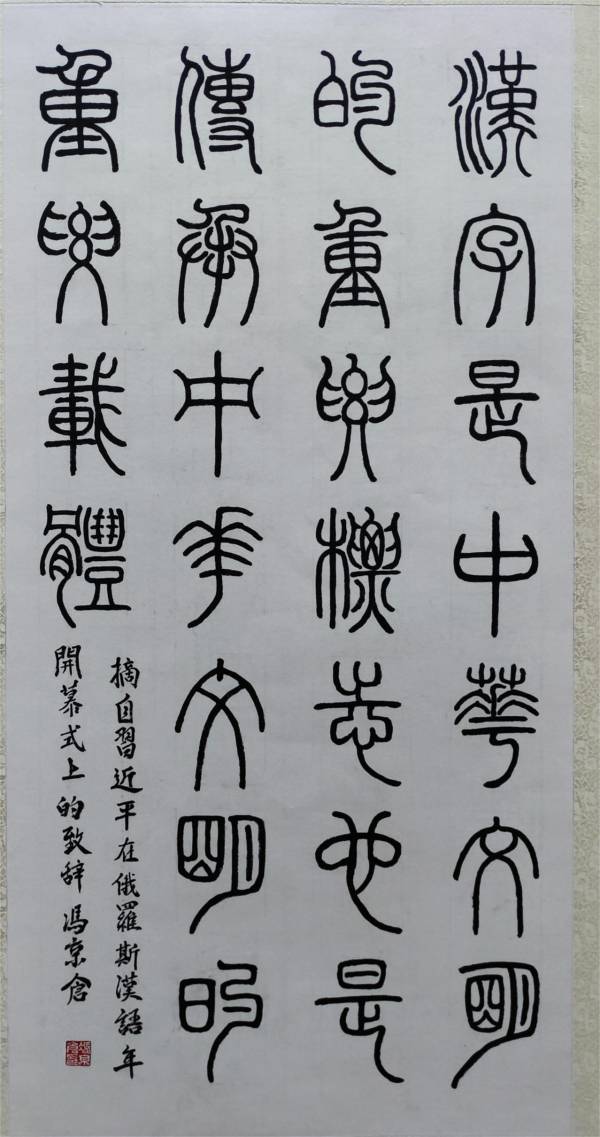 漢字是中華文明
的重要標志也是
傳承中華文明的
重要載體
摘自習近平在俄羅斯漢語年
開幕式上的致辞 馮京倉